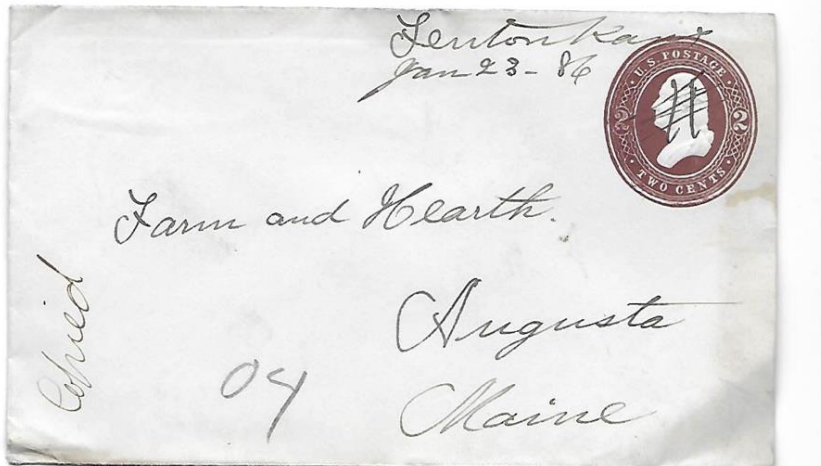 Fenton Kans
Jan 23 - 86
U.S. POSTAGE
2 2
TWO CENTS
Farm and Hearth.
Augusta
Maine
Copied
04